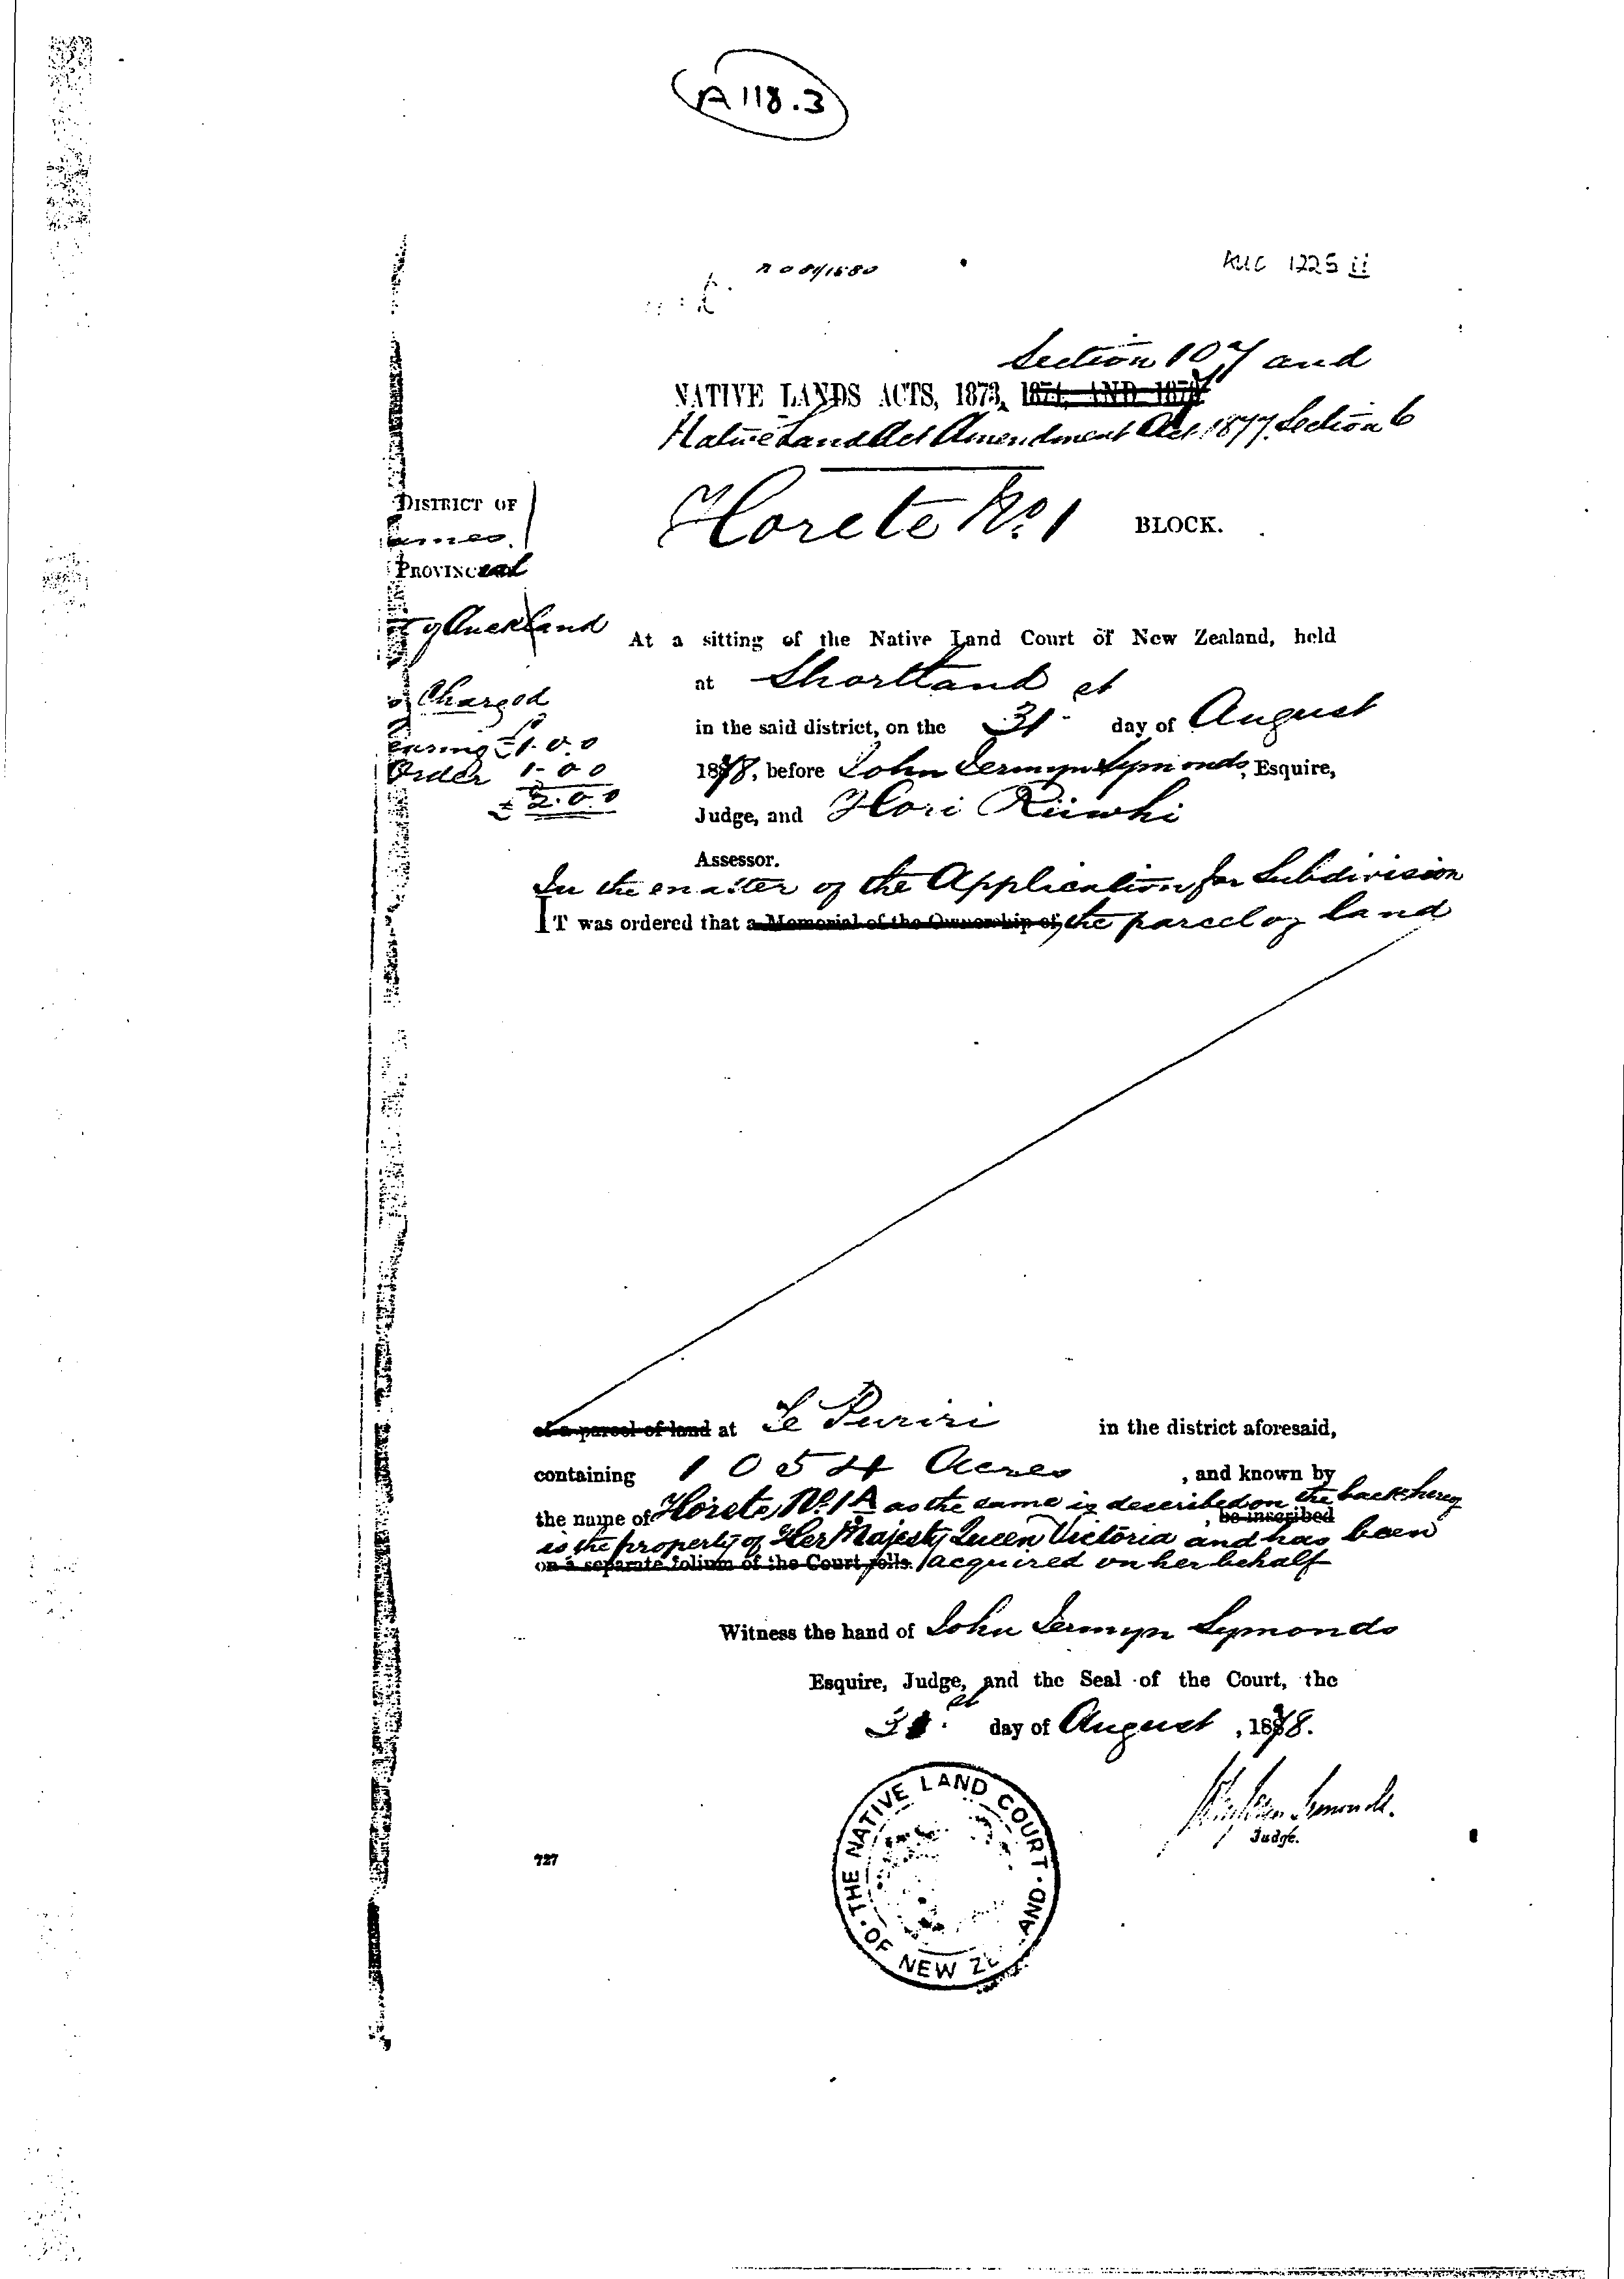 A 118.3
AUC 1225 ii
Section 107 and
NATIVE LANDS ACTS, 1873, 1874, AND 1877
Native Land Act Amendment Act 1877. Section 6
DISTRICT OF
Horete No. 1 BLOCK.
PROVINCIAL
of Auckland
At a sitting of the Native Land Court of New Zealand, held
at Shortland
Charged
in the said district, on the 31st day of August
1.0.0
Order 1-0 0
1878, before John Jermyn Symonds, Esquire,
£2.0.0
Judge, and Hori Riiwhi
Assessor.
In the matter of the Application for Subdivision
IT was ordered that a Memorial of the Ownership of the parcel of land
of a parcel of land at Te Puriri in the district aforesaid,
containing 1054 Acres , and known by
the name of Horete No. 1A as the same is described on the back hereof
, be inscribed
is the property of Her Majesty Queen Victoria and has been
on a separate folium of the Court rolls. acquired on her behalf
Witness the hand of John Jermyn Symonds
Esquire, Judge, and the Seal of the Court, the
31st day of August, 1878.
Judge.
727
THE NATIVE LAND COURT OF NEW